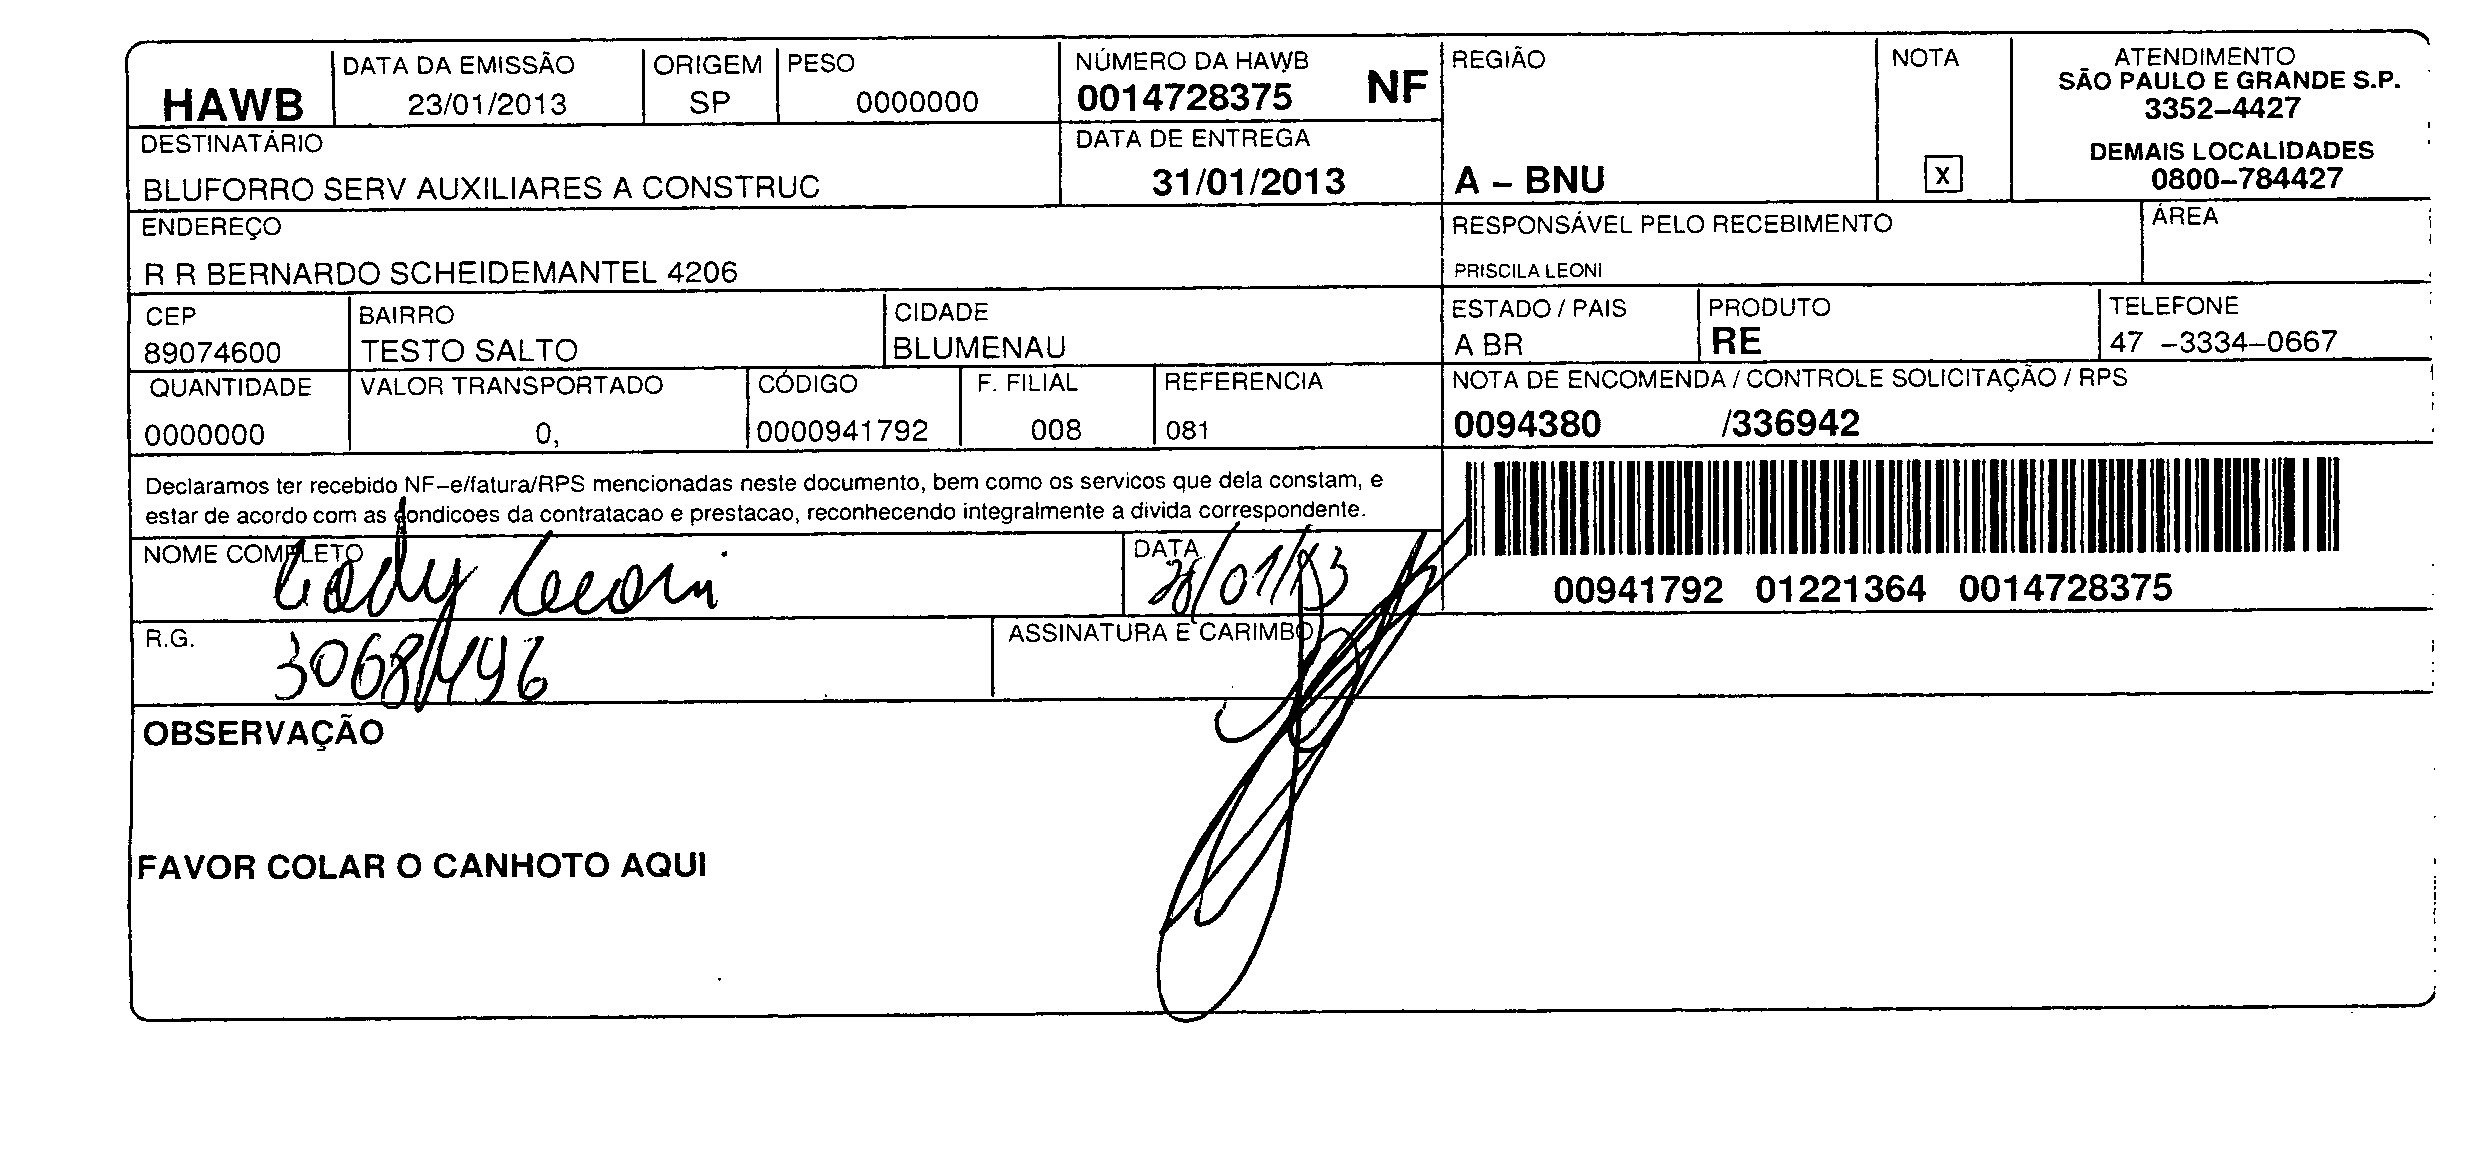 HAWB
DATA DA EMISSÃO
23/01/2013
ORIGEM
SP
PESO
0000000
NÚMERO DA HAWB
0014728375 NF
REGIÃO
A – BNU
NOTA
X
ATENDIMENTO
SÃO PAULO E GRANDE S.P.
3352–4427
DEMAIS LOCALIDADES
0800–784427
DESTINATÁRIO
BLUFORRO SERV AUXILIARES A CONSTRUC
DATA DE ENTREGA
31/01/2013
ENDEREÇO
R R BERNARDO SCHEIDEMANTEL 4206
RESPONSÁVEL PELO RECEBIMENTO
PRISCILA LEONI
ÁREA
CEP
89074600
BAIRRO
TESTO SALTO
CIDADE
BLUMENAU
ESTADO / PAIS
A BR
PRODUTO
RE
TELEFONE
47 –3334–0667
QUANTIDADE
0000000
VALOR TRANSPORTADO
0,
CÓDIGO
0000941792
F. FILIAL
008
REFERENCIA
081
NOTA DE ENCOMENDA / CONTROLE SOLICITAÇÃO / RPS
0094380 /336942
Declaramos ter recebido NF–e/fatura/RPS mencionadas neste documento, bem como os servicos que dela constam, e
estar de acordo com as condicoes da contratacao e prestacao, reconhecendo integralmente a divida correspondente.
00941792 01221364 0014728375
NOME COMPLETO
Leoni
DATA
R.G.
ASSINATURA E CARIMBO
OBSERVAÇÃO
FAVOR COLAR O CANHOTO AQUI